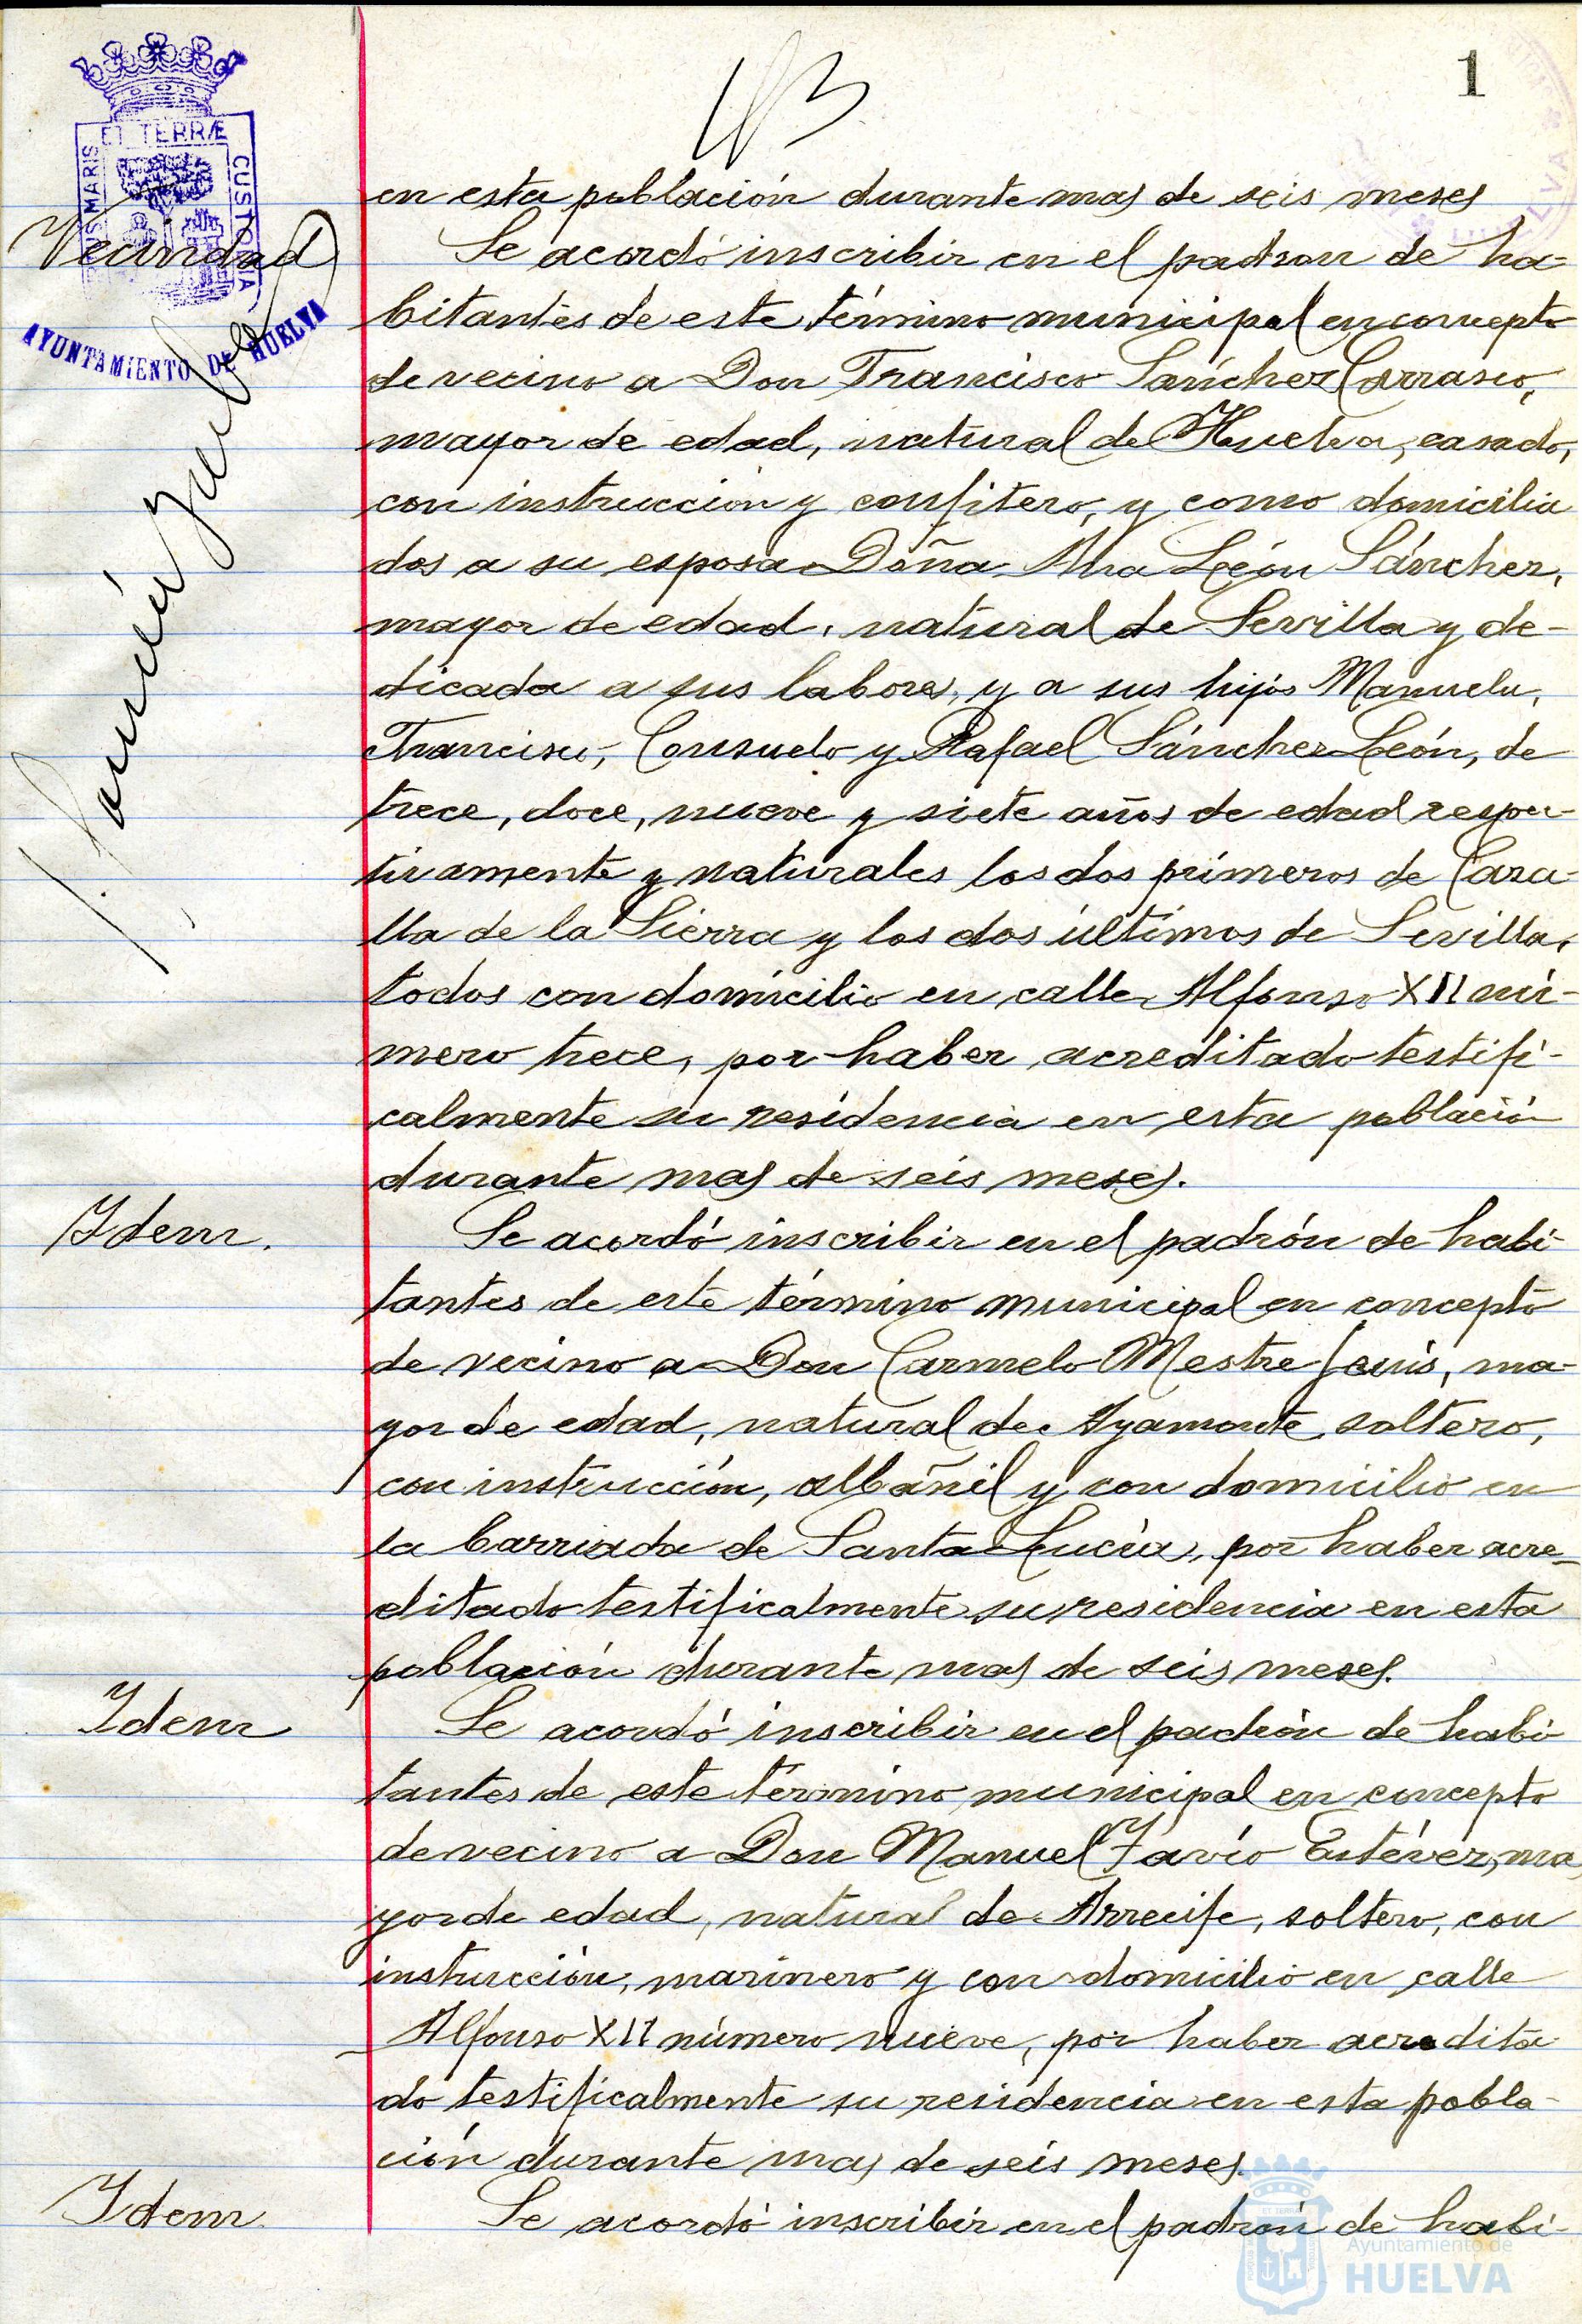 1
en esta población durante mas de seis meses
Vecindad
Se acordó inscribir en el padron de ha-
bitantes de este término municipal en concepto
de vecino a Don Francisco Sánchez Carrasco,
mayor de edad, natural de Huelva, casado,
con instruccion y confitero, y como domicilia
dos a su esposa Doña Ana León Sánchez,
mayor de edad, natural de Sevilla y de-
dicada a sus labores, y a sus hijos Manuela,
Francisco, Consuelo y Rafael Sánchez León, de
trece, doce, nueve y siete años de edad respec-
tivamente y naturales los dos primeros de Caza-
lla de la Sierra y los dos últimos de Sevilla,
todos con domicilio en calle Alfonso XII nú-
mero trece, por haber acreditado testifi-
calmente su residencia en esta población
durante mas de seis meses.
Idem.
Se acordó inscribir en el padrón de habi-
tantes de este término municipal en concepto
de vecino a Don Carmelo Mestre, ma-
yor de edad, natural de Ayamonte, soltero,
con instrucción, albañil y con domicilio en
la barriada de Santa Lucía, por haber acre-
ditado testificalmente su residencia en esta
población durante mas de seis meses.
Idem
Se acordó inscribir en el padrón de habi
tantes de este término municipal en concepto
de vecino a Don Manuel Favío Estévez, ma
yor de edad, natural de Arrecife, soltero, con
instrucción, marinero y con domicilio en calle
Alfonso XII número nueve, por haber acredita-
do testificalmente su residencia en esta pobla-
ción durante mas de seis meses.
Idem
Se acordó inscribir en el padrón de habi-
ET TERRÆ
MARIS
CUSTODIA
AYUNTAMIENTO DE HUELVA
Ayuntamiento de
HUELVA